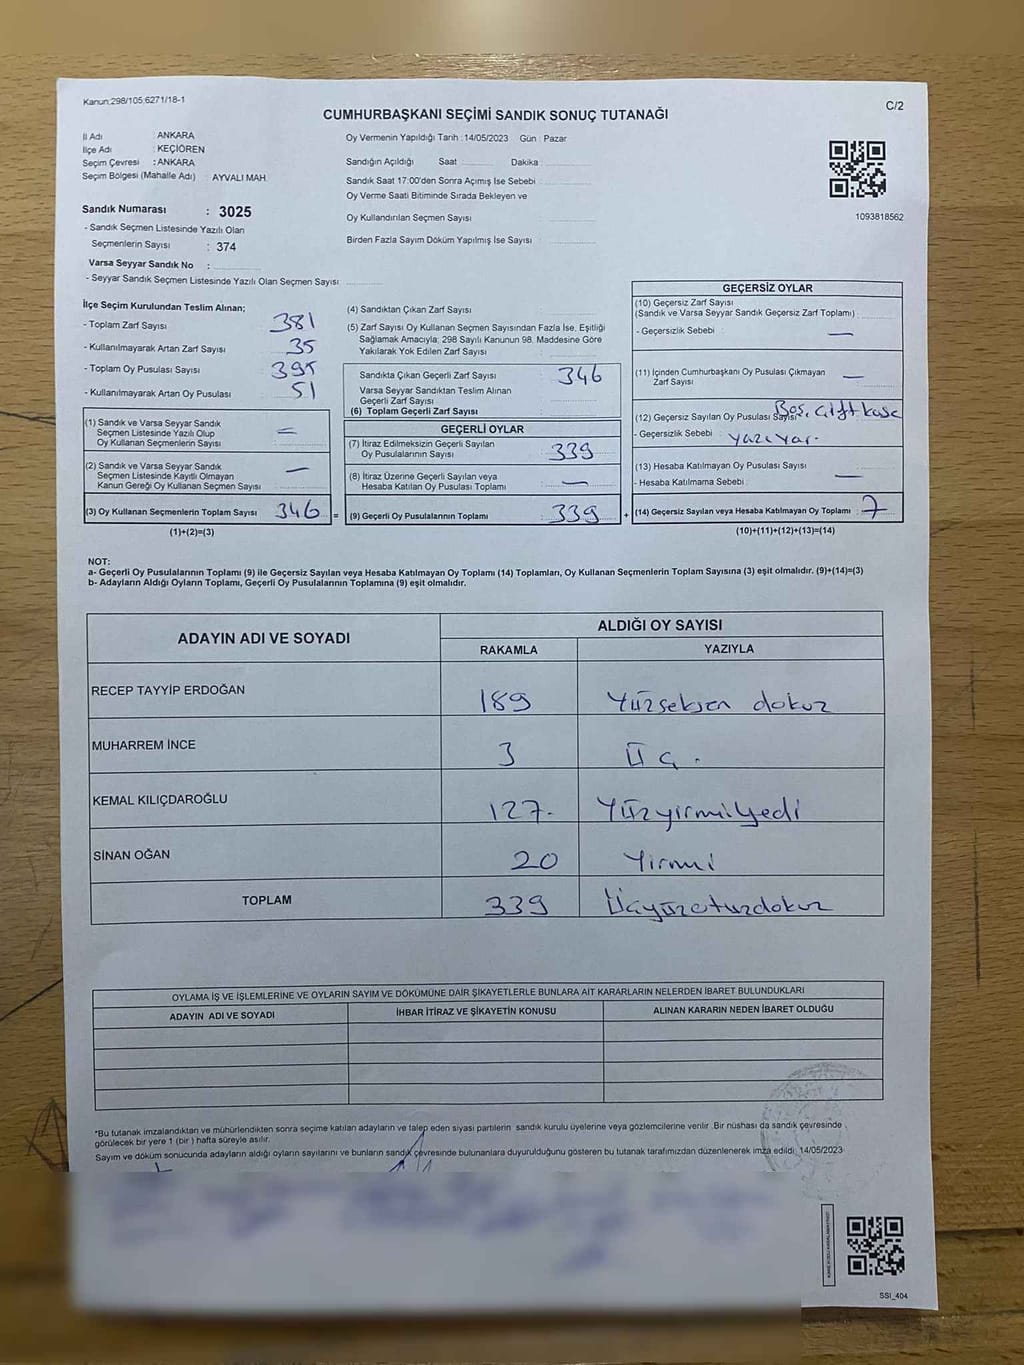 Kanun:298/105,6271/18-1
C/2
CUMHURBAŞKANI SEÇİMİ SANDIK SONUÇ TUTANAĞI
İl Adı : ANKARA
İlçe Adı : KEÇİÖREN
Seçim Çevresi : ANKARA
Seçim Bölgesi (Mahalle Adı) : AYVALI MAH.
Sandık Numarası : 3025
- Sandık Seçmen Listesinde Yazılı Olan
Seçmenlerin Sayısı : 374
Varsa Seyyar Sandık No :
- Seyyar Sandık Seçmen Listesinde Yazılı Olan Seçmen Sayısı
Oy Vermenin Yapıldığı Tarih :14/05/2023 Gün : Pazar
Sandığın Açıldığı Saat Dakika :
Sandık Saat 17:00'den Sonra Açımış İse Sebebi :
Oy Verme Saati Bitiminde Sırada Bekleyen ve
Oy Kullandırılan Seçmen Sayısı :
Birden Fazla Sayım Döküm Yapılmış İse Sayısı :
1093818562
İlçe Seçim Kurulundan Teslim Alınan;
- Toplam Zarf Sayısı : 381
- Kullanılmayarak Artan Zarf Sayısı : 35
- Toplam Oy Pusulası Sayısı : 395
- Kullanılmayarak Artan Oy Pusulası : 51
(1) Sandık ve Varsa Seyyar Sandık
Seçmen Listesinde Yazılı Olup
Oy Kullanan Seçmenlerin Sayısı :
(2) Sandık ve Varsa Seyyar Sandık
Seçmen Listesinde Kayıtlı Olmayan
Kanun Gereği Oy Kullanan Seçmen Sayısı : —
(3) Oy Kullanan Seçmenlerin Toplam Sayısı : 346
(1)+(2)=(3)
(4) Sandıktan Çıkan Zarf Sayısı :
(5) Zarf Sayısı Oy Kullanan Seçmen Sayısından Fazla İse, Eşitliği
Sağlamak Amacıyla; 298 Sayılı Kanunun 98. Maddesine Göre
Yakılarak Yok Edilen Zarf Sayısı :
Sandıkta Çıkan Geçerli Zarf Sayısı : 346
Varsa Seyyar Sandıktan Teslim Alınan
Geçerli Zarf Sayısı :
(6) Toplam Geçerli Zarf Sayısı :
GEÇERLİ OYLAR
(7) İtiraz Edilmeksizin Geçerli Sayılan
Oy Pusulalarının Sayısı : 339
(8) İtiraz Üzerine Geçerli Sayılan veya
Hesaba Katılan Oy Pusulası Toplamı : —
= (9) Geçerli Oy Pusulalarının Toplamı : 339 +
GEÇERSİZ OYLAR
(10) Geçersiz Zarf Sayısı
(Sandık ve Varsa Seyyar Sandık Geçersiz Zarf Toplamı) :
- Geçersizlik Sebebi : —
(11) İçinden Cumhurbaşkanı Oy Pusulası Çıkmayan
Zarf Sayısı : —
(12) Geçersiz Sayılan Oy Pusulası Sayısı : Boş, çift kaşe
- Geçersizlik Sebebi : yazıyar.
(13) Hesaba Katılmayan Oy Pusulası Sayısı
- Hesaba Katılmama Sebebi : —
(14) Geçersiz Sayılan veya Hesaba Katılmayan Oy Toplamı : 7
(10)+(11)+(12)+(13)=(14)
NOT:
a- Geçerli Oy Pusulalarının Toplamı (9) ile Geçersiz Sayılan veya Hesaba Katılmayan Oy Toplamı (14) Toplamları, Oy Kullanan Seçmenlerin Toplam Sayısına (3) eşit olmalıdır. (9)+(14)=(3)
b- Adayların Aldığı Oyların Toplamı, Geçerli Oy Pusulalarının Toplamına (9) eşit olmalıdır.
ADAYIN ADI VE SOYADI
ALDIĞI OY SAYISI
RAKAMLA YAZIYLA
RECEP TAYYİP ERDOĞAN 189 Yüzseksen dokuz
MUHARREM İNCE 3 Üç.
KEMAL KILIÇDAROĞLU 127. Yüzyirmiyedi
SİNAN OĞAN 20 Yirmi
TOPLAM 339 Üçyüzotuzdokuz
OYLAMA İŞ VE İŞLEMLERİNE VE OYLARIN SAYIM VE DÖKÜMÜNE DAİR ŞİKAYETLERLE BUNLARA AİT KARARLARIN NELERDEN İBARET BULUNDUKLARI
ADAYIN ADI VE SOYADI İHBAR İTİRAZ VE ŞİKAYETİN KONUSU ALINAN KARARIN NEDEN İBARET OLDUĞU
*Bu tutanak imzalandıktan ve mühürlendikten sonra seçime katılan adayların ve talep eden siyasi partilerin sandık kurulu üyelerine veya gözlemcilerine verilir. Bir nüshası da sandık çevresinde
görülecek bir yere 1 (bir ) hafta süreyle asılır.
Sayım ve döküm sonucunda adayların aldığı oyların sayılarını ve bunların sandık çevresinde bulunanlara duyurulduğunu gösteren bu tutanak tarafımızdan düzenlenerek imza edildi. 14/05/2023
SSI_404